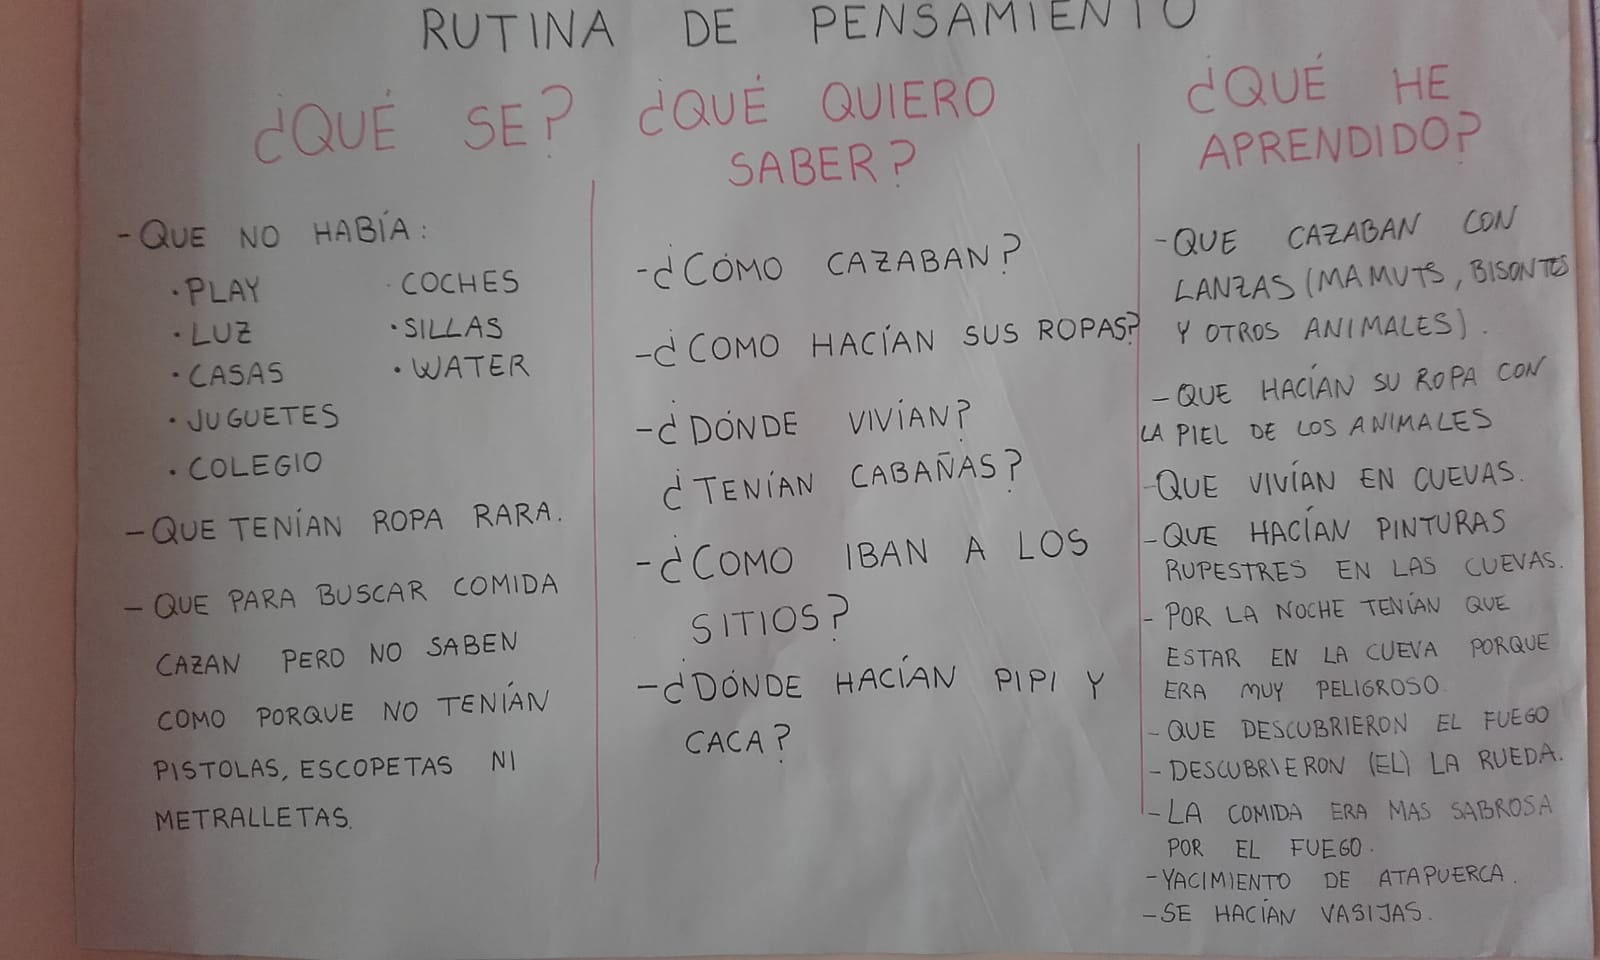 RUTINA DE PENSAMIENTO
¿QUÉ SE?
- QUE NO HABÍA:
· PLAY
· LUZ
· CASAS
· JUGUETES
· COLEGIO
· COCHES
· SILLAS
· WATER
- QUE TENÍAN ROPA RARA.
- QUE PARA BUSCAR COMIDA
CAZAN PERO NO SABEN
COMO PORQUE NO TENÍAN
PISTOLAS, ESCOPETAS NI
METRALLETAS.
¿QUÉ QUIERO
SABER?
- ¿CÓMO CAZABAN?
- ¿COMO HACÍAN SUS ROPAS?
- ¿DÓNDE VIVÍAN?
¿TENÍAN CABAÑAS?
- ¿COMO IBAN A LOS
SITIOS?
- ¿DÓNDE HACÍAN PIPI Y
CACA?
¿QUÉ HE
APRENDIDO?
- QUE CAZABAN CON
LANZAS (MAMUTS, BISONTES
Y OTROS ANIMALES).
- QUE HACÍAN SU ROPA CON
LA PIEL DE LOS ANIMALES
- QUE VIVÍAN EN CUEVAS.
- QUE HACÍAN PINTURAS
RUPESTRES EN LAS CUEVAS.
- POR LA NOCHE TENÍAN QUE
ESTAR EN LA CUEVA PORQUE
ERA MUY PELIGROSO.
- QUE DESCUBRIERON EL FUEGO
- DESCUBRIERON (EL) LA RUEDA.
- LA COMIDA ERA MAS SABROSA
POR EL FUEGO.
- YACIMIENTO DE ATAPUERCA.
- SE HACÍAN VASIJAS.